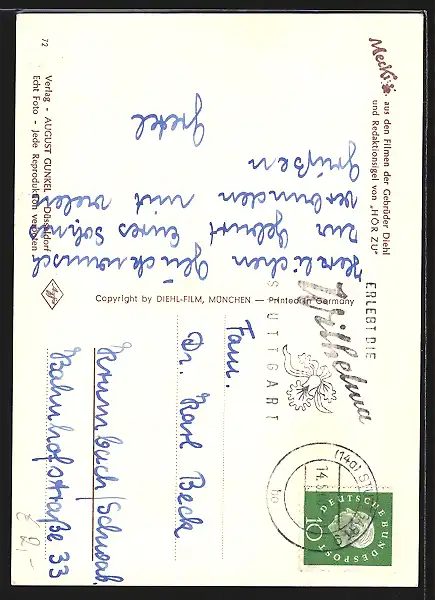 Mecki
aus den Filmen der Gebrüder Diehl
und Redaktionsigel von „HÖR ZU"
Herzlichen Glückwunsch
zur Geburt eures Sohns
verbunden mit vielen
Grüßen
Gretel
72
Verlag - AUGUST GUNKEL - Düsseldorf
Echt Foto - Jede Reproduktion verboten
Copyright by DIEHL-FILM, MÜNCHEN — Printed in Germany
ERLEBT DIE
Wilhelma
STUTTGART
(14a) ST
14.5.
DEUTSCHE BUNDESPOST
10
Fam.
Dr. Karl Beck
Krumbach/Schwab.
Bahnhofstraße 33
€ 2,-